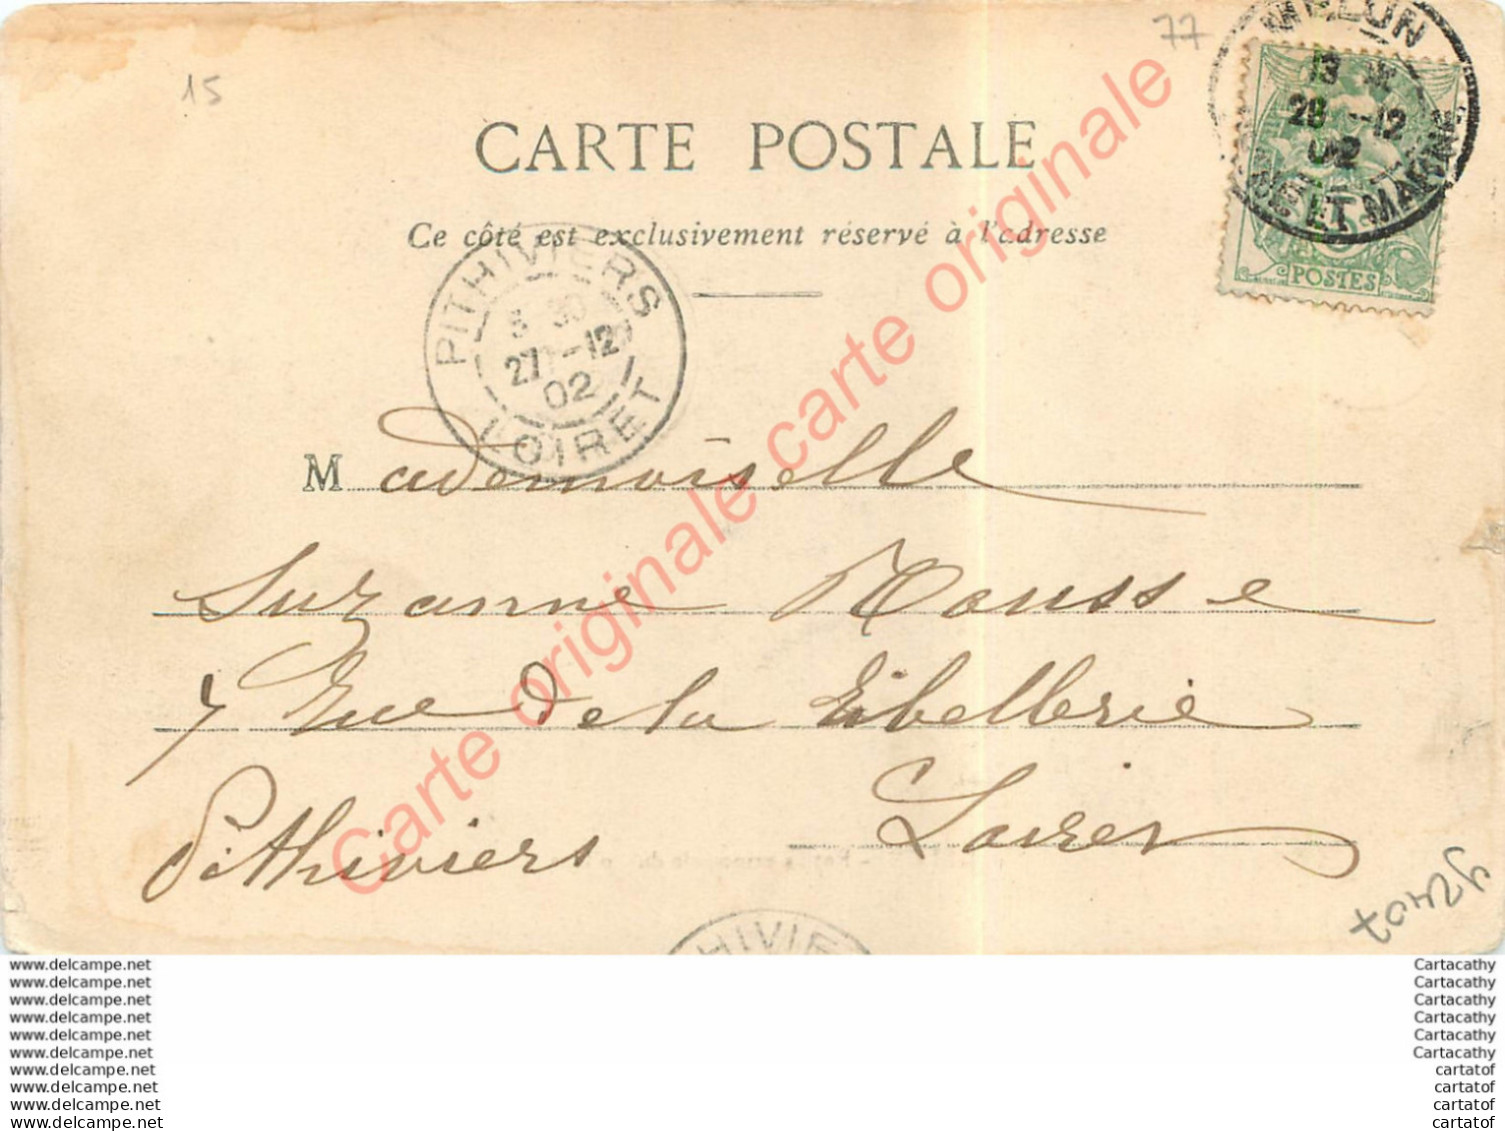 77
15
MELUN
13
28 -12
02
SEINE ET MARNE
5c
POSTES
CARTE POSTALE
Ce côté est exclusivement réservé à l'adresse
PITHIVIERS
5 30
27 -12
02
LOIRET
Mademoiselle
Suzanne Rousse
7 Rue de la
Pithiviers Loiret
92407
HIVIE
Carte originale carte originale carte originale
www.delcampe.net
www.delcampe.net
www.delcampe.net
www.delcampe.net
www.delcampe.net
www.delcampe.net
www.delcampe.net
www.delcampe.net
www.delcampe.net
www.delcampe.net
Cartacathy
Cartacathy
Cartacathy
Cartacathy
Cartacathy
Cartacathy
cartatof
cartatof
cartatof
cartatof